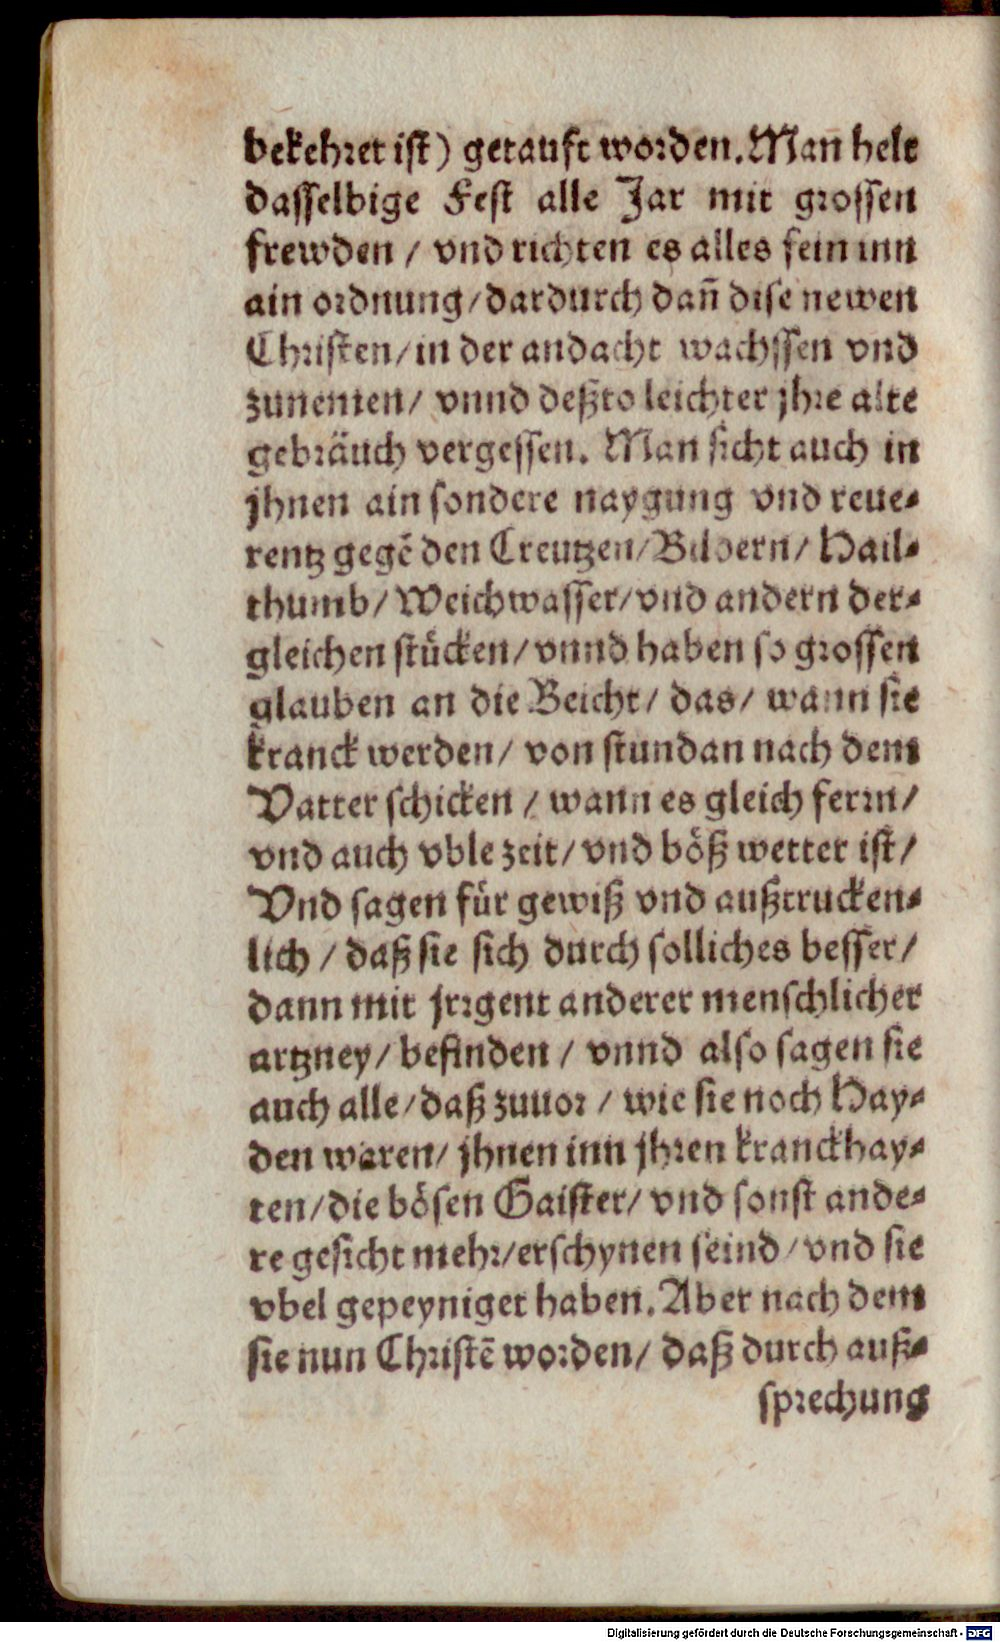 bekehret ist) getauft worden. Man helt
dasselbige Fest alle Jar mit grossen
frewden / vnd richten es alles fein inn
ain ordnung / dardurch dañ dise newen
Christen / in der andacht wachssen vnd
zunemen / vnnd deßto leichter jhre alte
gebräuch vergessen. Man sicht auch in
jhnen ain sondere naygung vnd reue⸗
rentz gegē den Creutzen / Bildern / Hail⸗
thumb / Weichwasser / vnd andern der⸗
gleichen stücken / vnnd haben so grossen
glauben an die Beicht / das / wann sie
kranck werden / von stundan nach dem
Vatter schicken / wann es gleich ferrn /
vnd auch vble zeit / vnd böß wetter ist /
Vnd sagen für gewiß vnd außtrucken⸗
lich / daß sie sich durch solliches besser /
dann mit jrrgent anderer menschlicher
artzney / befinden / vnnd also sagen sie
auch alle / daß zuuor / wie sie noch Hay⸗
den waren / jhnen inn jhren kranckhay⸗
ten / die bösen Gaister / vnd sonst ande⸗
re gesicht mehr / erschynen seind / vnd sie
vbel gepeyniget haben. Aber nach dem
sie nun Christē worden / daß durch auß⸗
sprechung
Digitalisierung gefördert durch die Deutsche Forschungsgemeinschaft - DFG